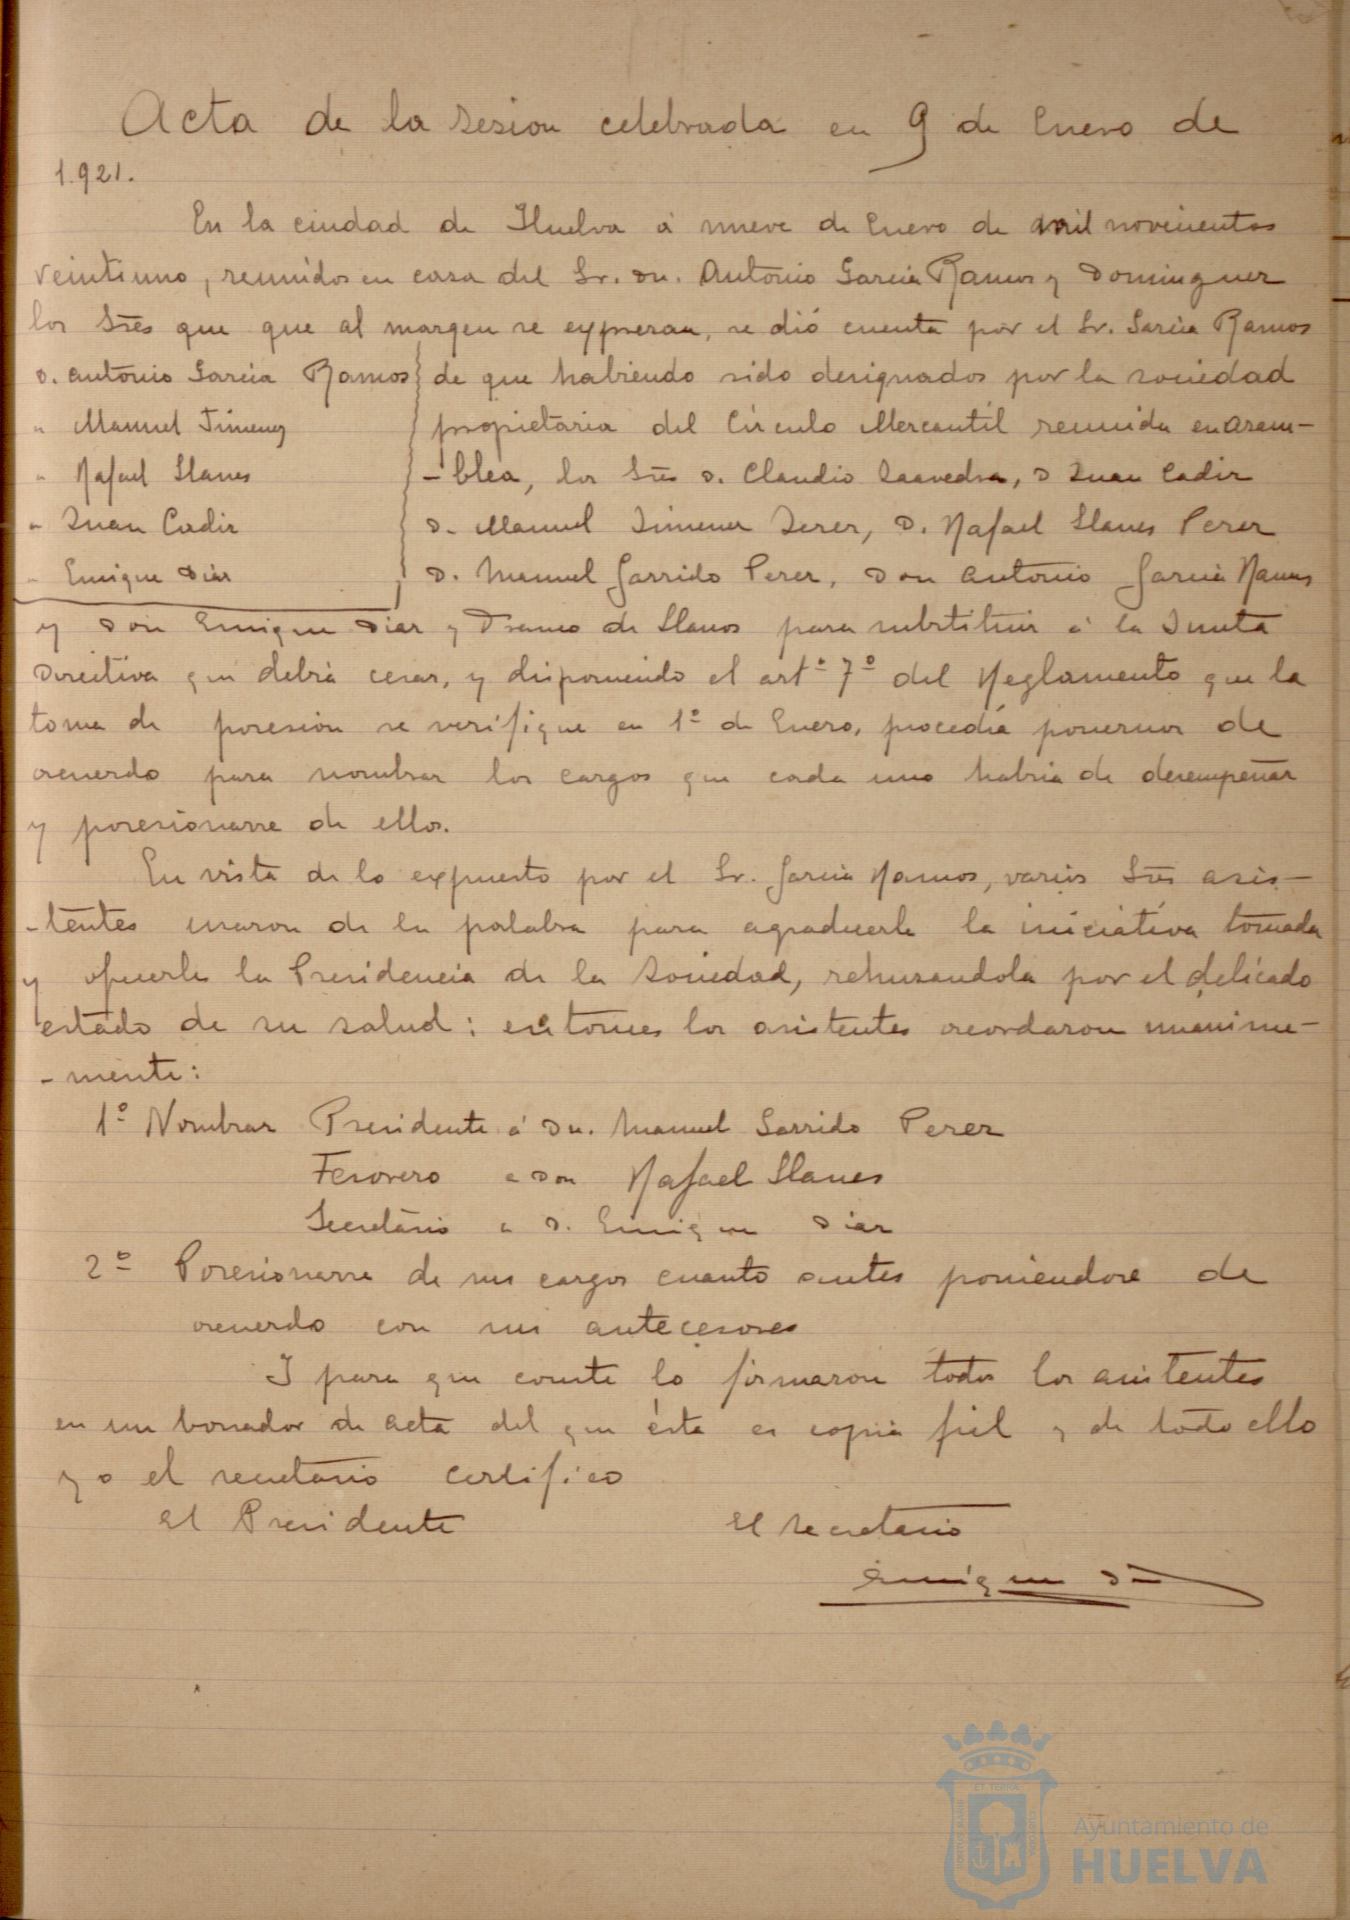 Acta de la sesion celebrada en 9 de Enero de
1.921.
En la ciudad de Huelva á nueve de Enero de mil novecientos
veintiuno, reunidos en casa del Sr. Dn. Antonio García Ramos y Dominguez
los Sres que que al margen se expresan, se dió cuenta por el Sr. García Ramos
D. Antonio García Ramos
" Manuel Jimenez
" Rafael Llanes
" Juan Cadiz
" Enrique Diaz
de que habiendo sido designados por la sociedad
propietaria del Círculo Mercantil reunida en asam-
-blea, los Sres D. Claudio Saavedra, D Juan Cadiz
D. Manuel Jimenez Jerez, D. Rafael Llanes Perez
D. Manuel Garrido Perez, Don Antonio García Ramos
y Don Enrique Diaz y Franco de Llanos para substituir á la Junta
Directiva que debía cesar, y disponiendo el artº 7º del Reglamento que la
toma de posesión se verifique en 1º de Enero, procedía ponernos de
acuerdo para nombrar los cargos que cada uno habria de desempeñar
y posesionarse de ellos.
En vista de lo expuesto por el Sr. García Ramos, varios Sres asis-
-tentes usaron de la palabra para agradecerle la iniciativa tomada
y ofrecerle la Presidencia de la Sociedad, rehusandola por el delicado
estado de su salud: entonces los asistentes acordaron unanime-
-mente:
1º Nombrar Presidente á Dn. Manuel Garrido Perez
Tesorero a Don Rafael Llanes
Secretario a D. Enrique Diaz
2º Posesionarse de sus cargos cuanto antes poniendose de
acuerdo con sus antecesores
I para que conste lo firmaron todos los asistentes
en un borrador de acta del que ésta es copia fiel y de todo ello
yo el secretario certifico
El Presidente
El Secretario
Enrique Diaz
PORTUS MARIS
ET TERRAE
CUSTODIA
Ayuntamiento de
HUELVA